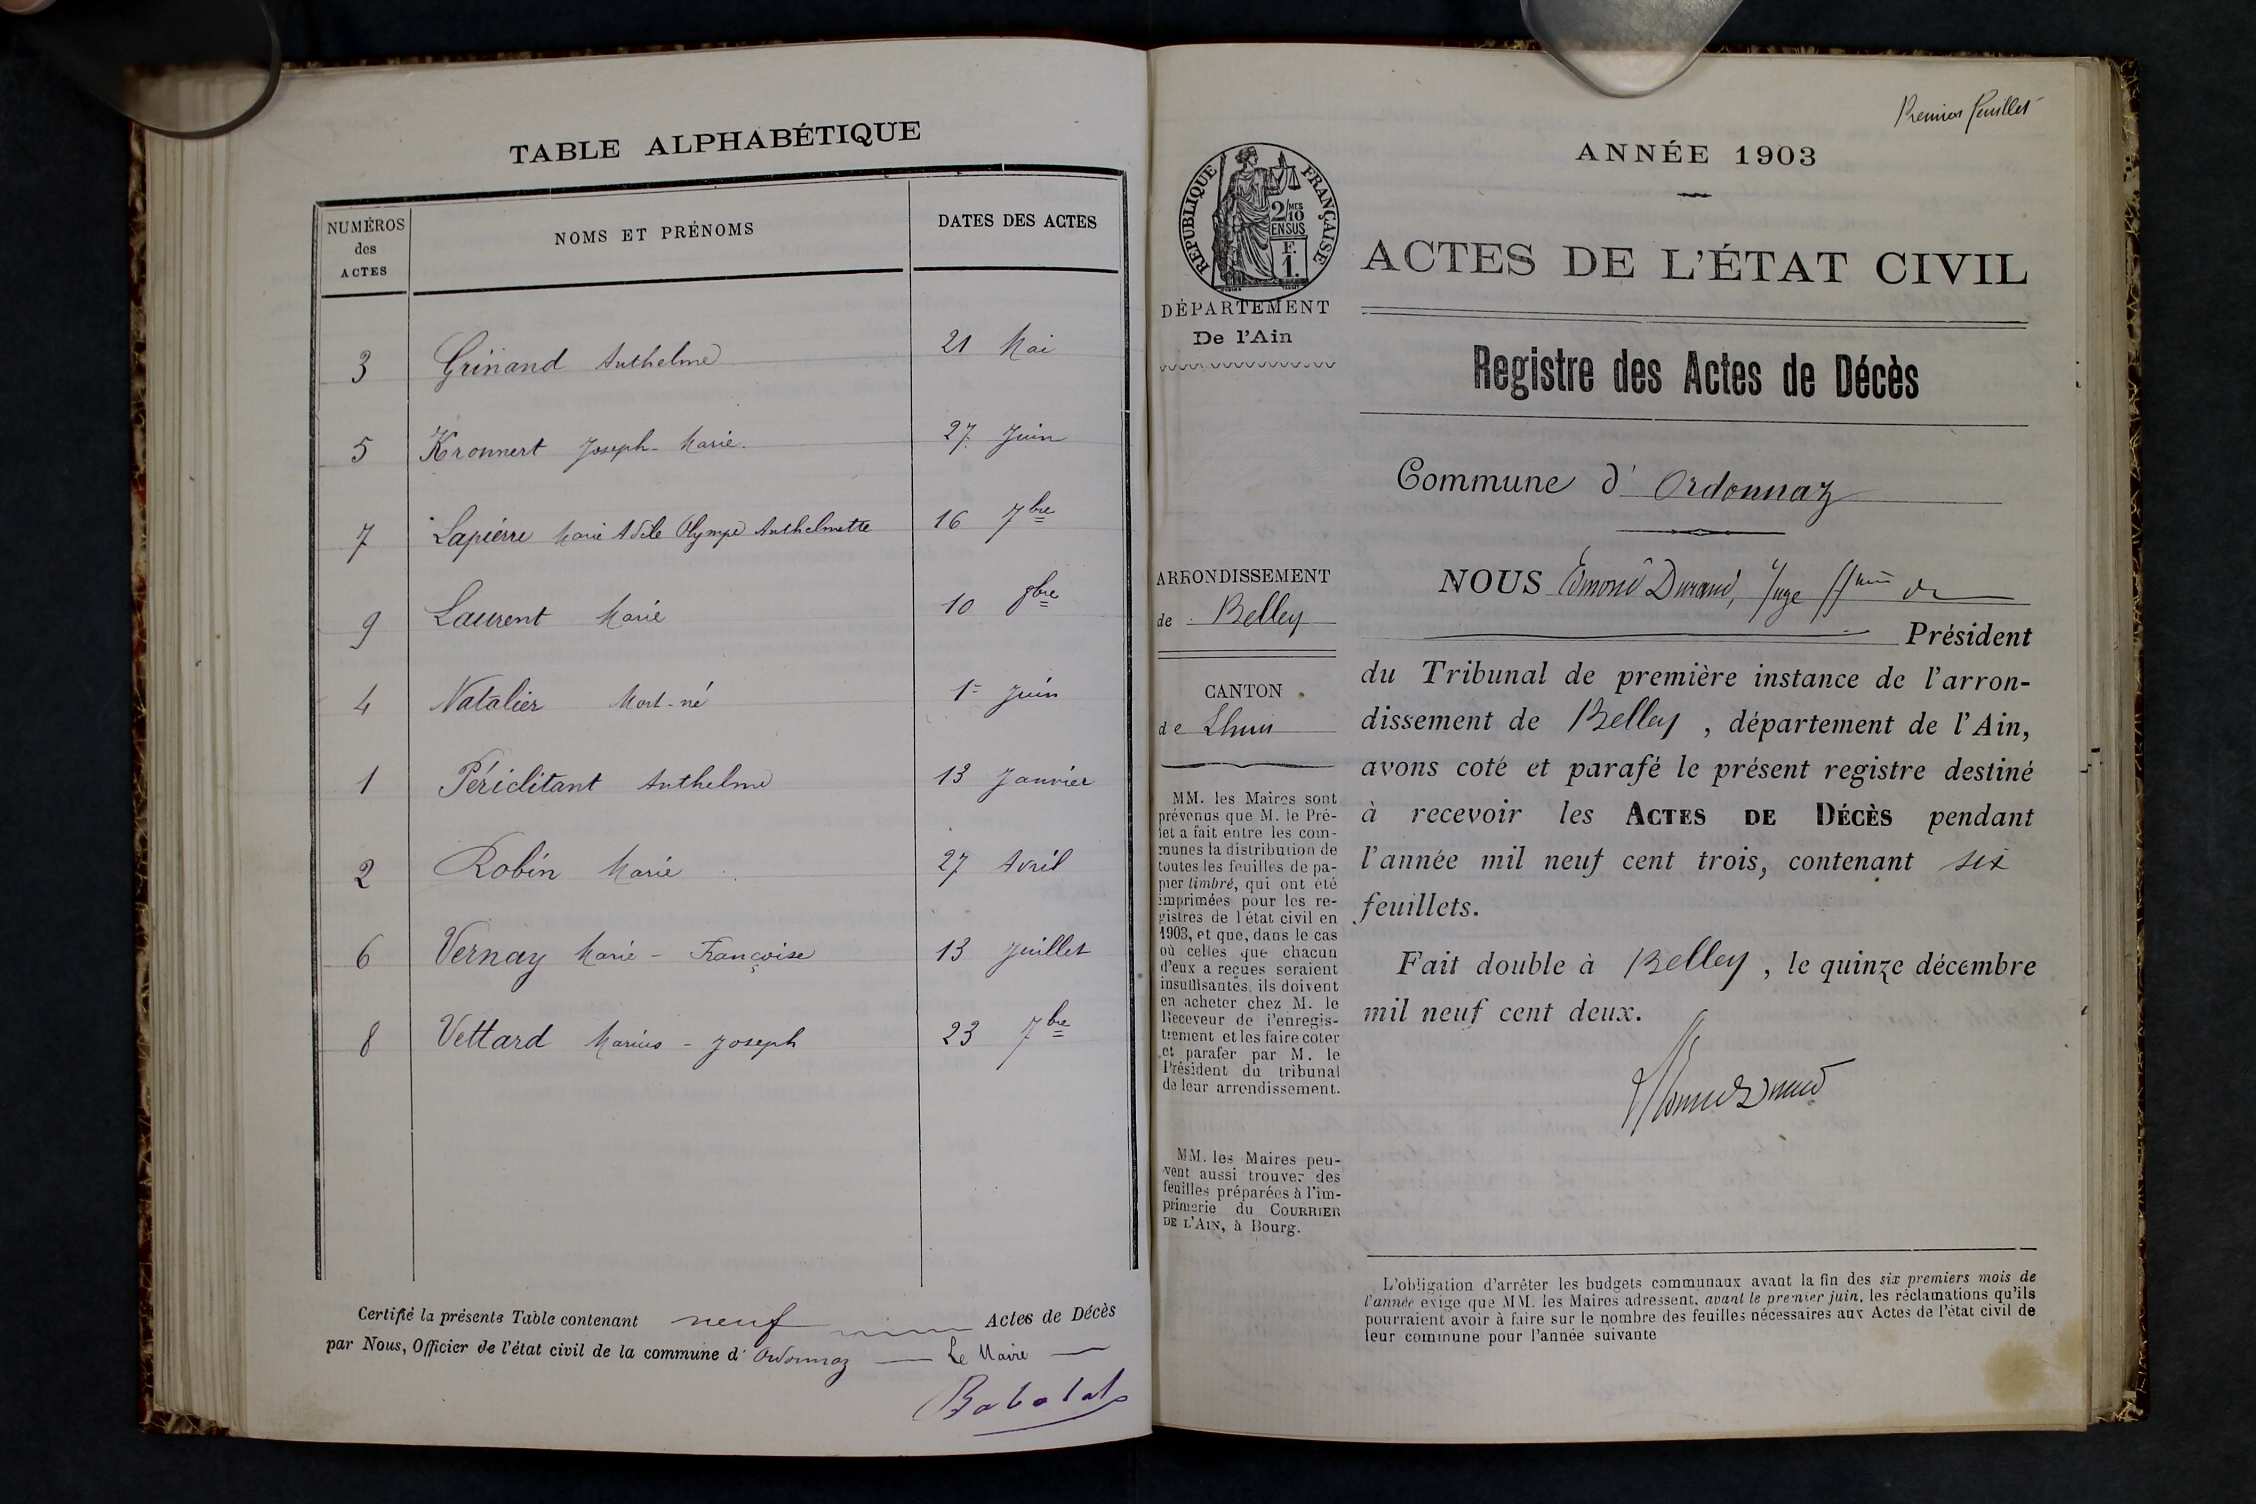 TABLE ALPHABÉTIQUE
NUMÉROS des ACTES NOMS ET PRÉNOMS DATES DES ACTES
3 Grinand Anthelme 21 Mai
5 Kronnert Joseph-Marie. 27 Juin
7 Lapierre Marie Adèle Olympe Anthelmette 16 7bre
9 Laurent Marie 10 9bre
4 Natalier Mort-né 1er Juin
1 Périclitant Anthelme 13 Janvier
2 Robin Marie 27 Avril
6 Vernay Marie-Françoise 13 Juillet
8 Vettard Marius-Joseph 23 7bre
Certifié la présente Table contenant neuf Actes de Décès
par Nous, Officier de l'état civil de la commune d'Ordonnaz Le Maire
Babolat
Premier feuillet
ANNÉE 1903
RÉPUBLIQUE FRANÇAISE
2/10 MES
EN SUS
F.
1.
DÉPARTEMENT
De l'Ain
ACTES DE L'ÉTAT CIVIL
Registre des Actes de Décès
Commune d'Ordonnaz
ARRONDISSEMENT
de Belley
CANTON
de Lhuis
MM. les Maires sont
prévenus que M. le Pré-
fet a fait entre les com-
munes la distribution de
toutes les feuilles de pa-
pier timbré, qui ont été
imprimées pour les re-
gistres de l'état civil en
1903, et que, dans le cas
où celles que chacun
d'eux a reçues seraient
insuffisantes, ils doivent
en acheter chez M. le
Receveur de l'enregis-
trement et les faire coter
et parafer par M. le
Président du tribunal
de leur arrondissement.
MM. les Maires peu-
vent aussi trouver des
feuilles préparées à l'im-
primerie du COURRIER
DE L'AIN, à Bourg.
NOUS Edmond Durand, Juge
Président
du Tribunal de première instance de l'arron-
dissement de Belley, département de l'Ain,
avons coté et parafé le présent registre destiné
à recevoir les ACTES DE DÉCÈS pendant
l'année mil neuf cent trois, contenant six
feuillets.
Fait double à Belley, le quinze décembre
mil neuf cent deux.
L'obligation d'arrêter les budgets communaux avant la fin des six premiers mois de
l'année exige que MM. les Maires adressent, avant le premier juin, les réclamations qu'ils
pourraient avoir à faire sur le nombre des feuilles nécessaires aux Actes de l'état civil de
leur commune pour l'année suivante